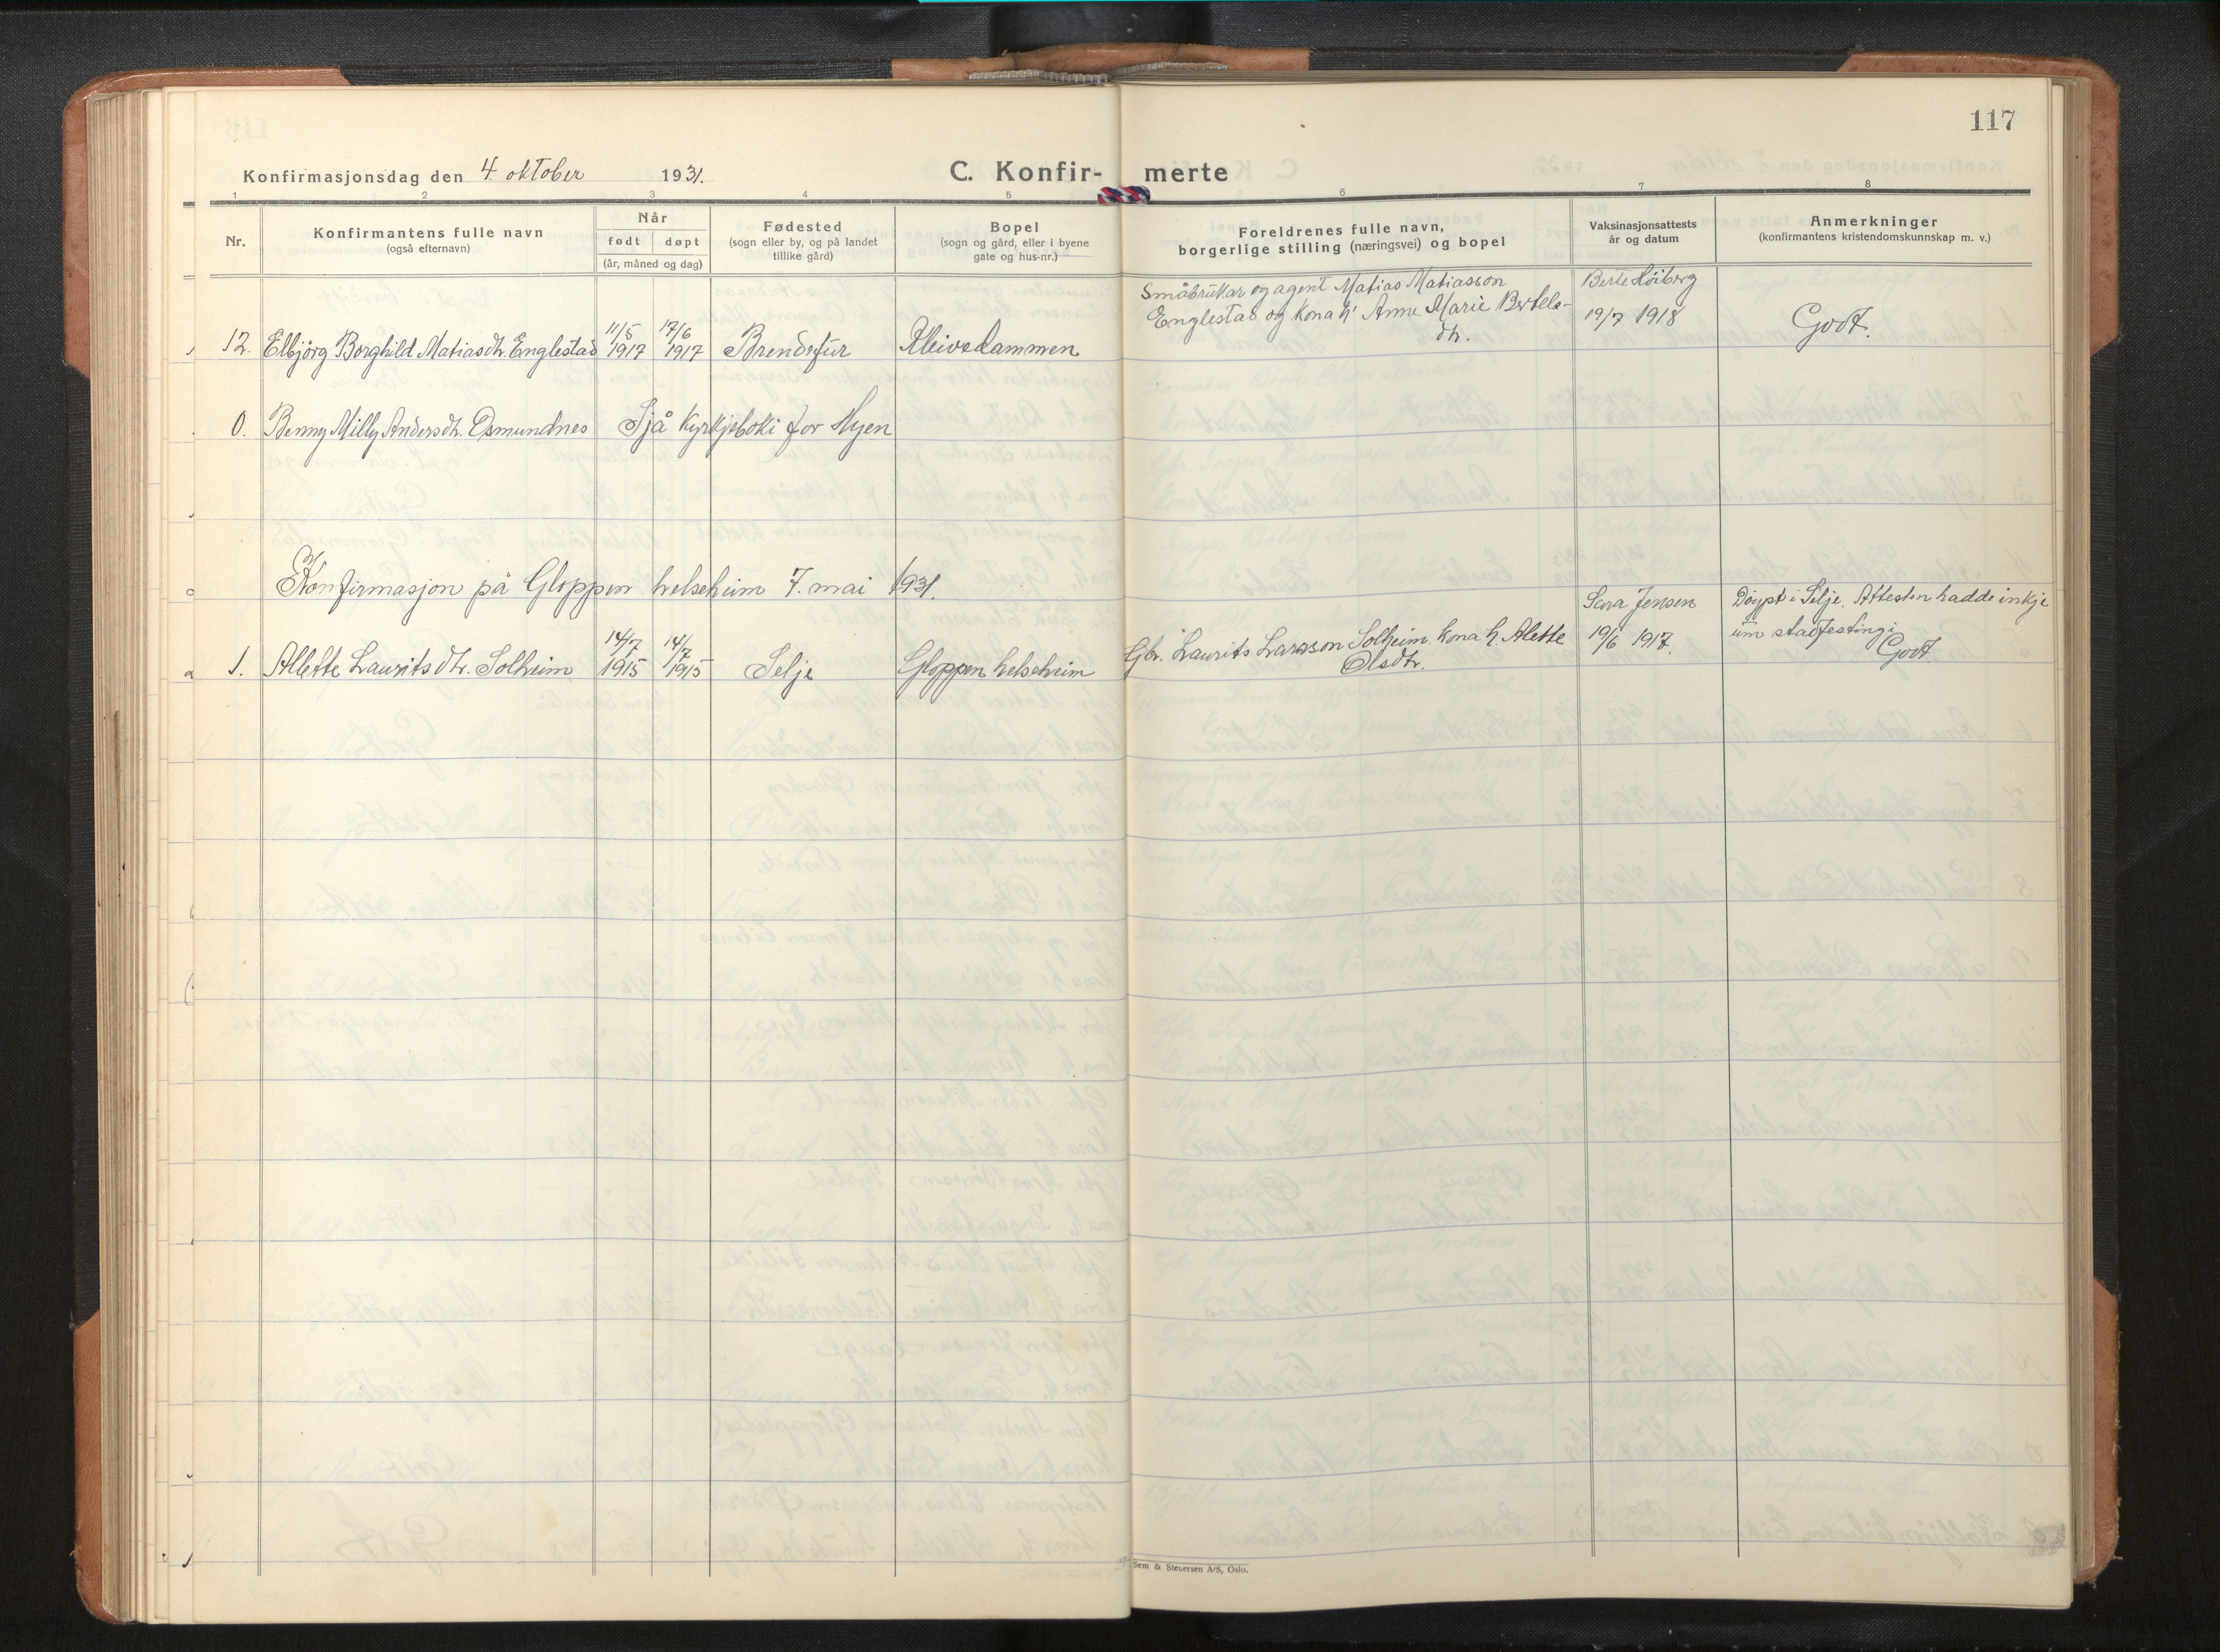 117
Konfirmasjonsdag den 4. oktober 1931.
C. Konfir- merte
1 2 3 4 5 6 7 8
Nr.
Konfirmantens fulle navn
(også efternavn)
Når
født døpt
(år, måned og dag)
Fødested
(sogn eller by, og på landet
tillike gård)
Bopel
(sogn og gård, eller i byene
gate og hus-nr.)
Foreldrenes fulle navn,
borgerlige stilling (næringsvei) og bopel
Vaksinasjonsattests
år og datum
Anmerkninger
(konfirmantens kristendomskunnskap m. v.)
12. Elbjörg Borghild Matiasdtr. Englestad
11/5 1917
17/6 1917
Brendefur
Kleivdammen
Småbrukar og agent Matias Matiasson
Englestad og kona h' Anne Marie Bertels-
dtr.
Berte Höiberg
19/7 1918
Godt.
0. Benny Milly Andersdtr. Osmundnes Sjå kyrkjeboki for Hyen
Konfirmasjon på Gloppen helseheim 7. mai 1931.
1. Allette Lauritsdtr. Solheim
14/7 1915
14/7 1915
Selje
Gloppen helseheim
Gbr. Laurits Larsson Solheim. kona h. Alette
Olsdtr.
Sara Jensen
19/6 1917.
Döypt i Selje. Attesten hadde inkje
um stadfesting
Godt
Sem & Stenersen A/S, Oslo.